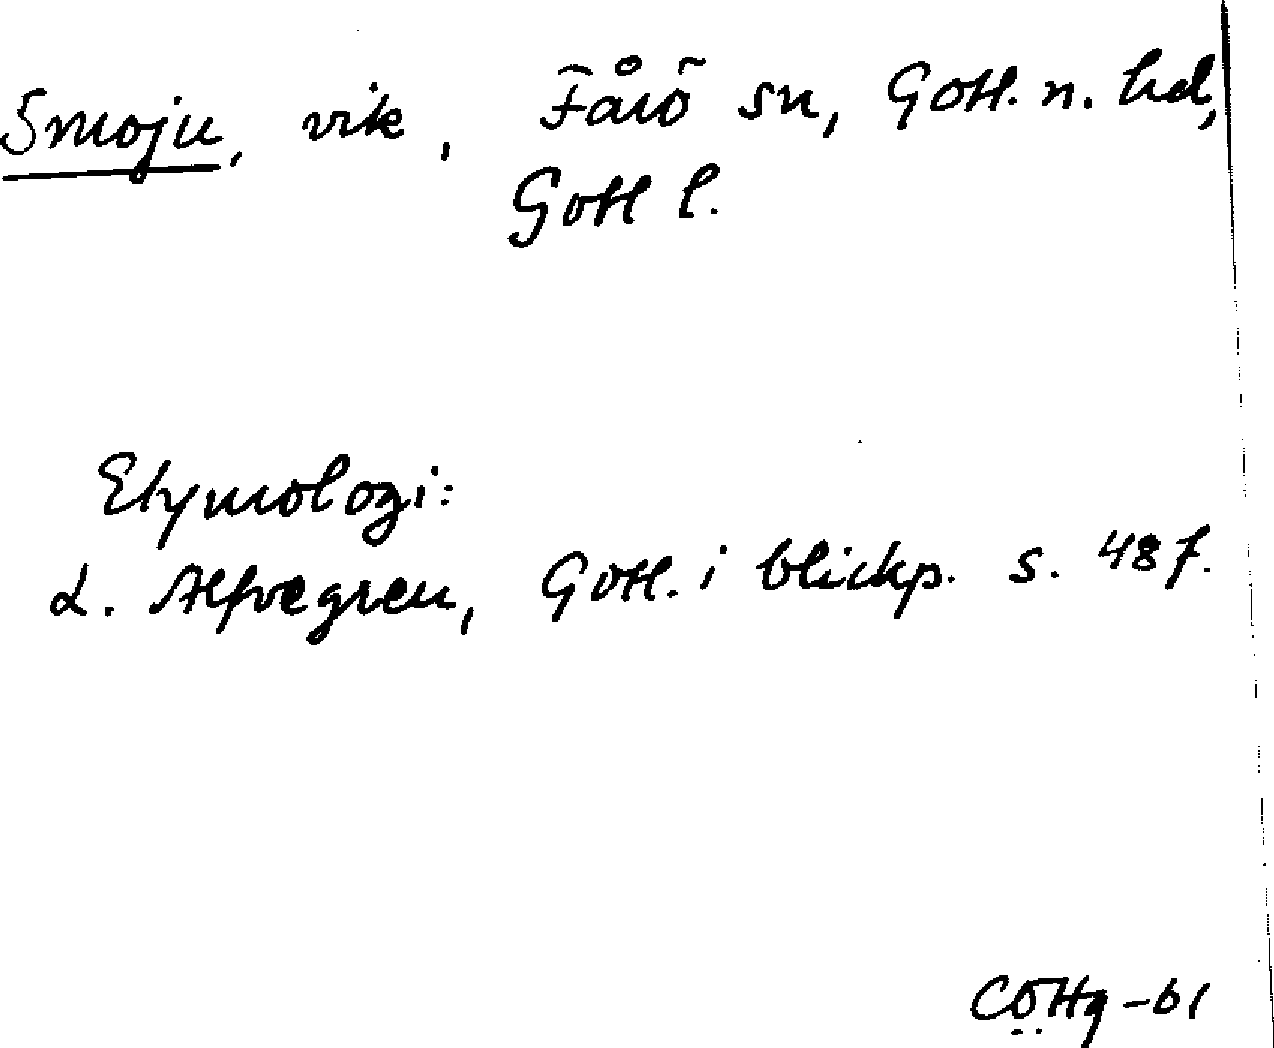 Smoju, vik, Fårö sn, Gotl. n. hd,
Gotl l.
Etymologi:
L. Alfvegren, Gotl. i blickp. s. 48 f.
CÖHg -61